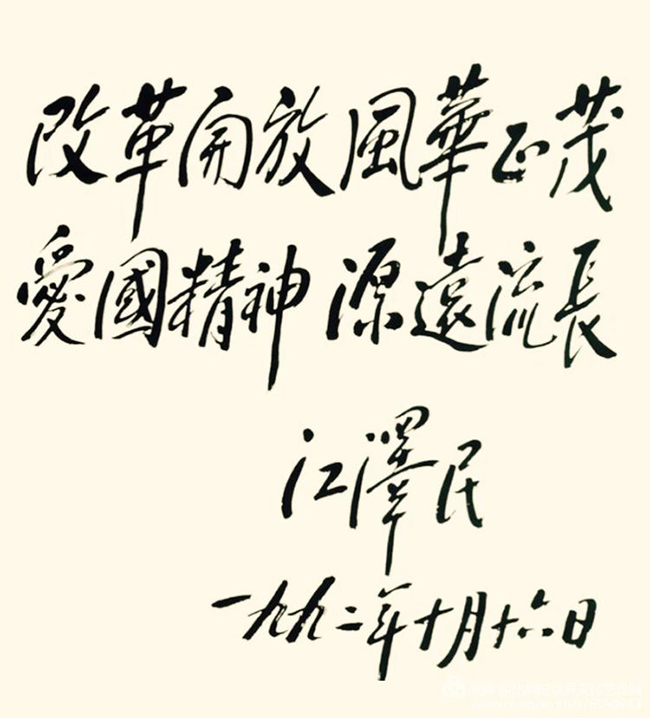 改革開放風華正茂
愛國精神 源遠流長
江澤民
一九九二年十月十六日